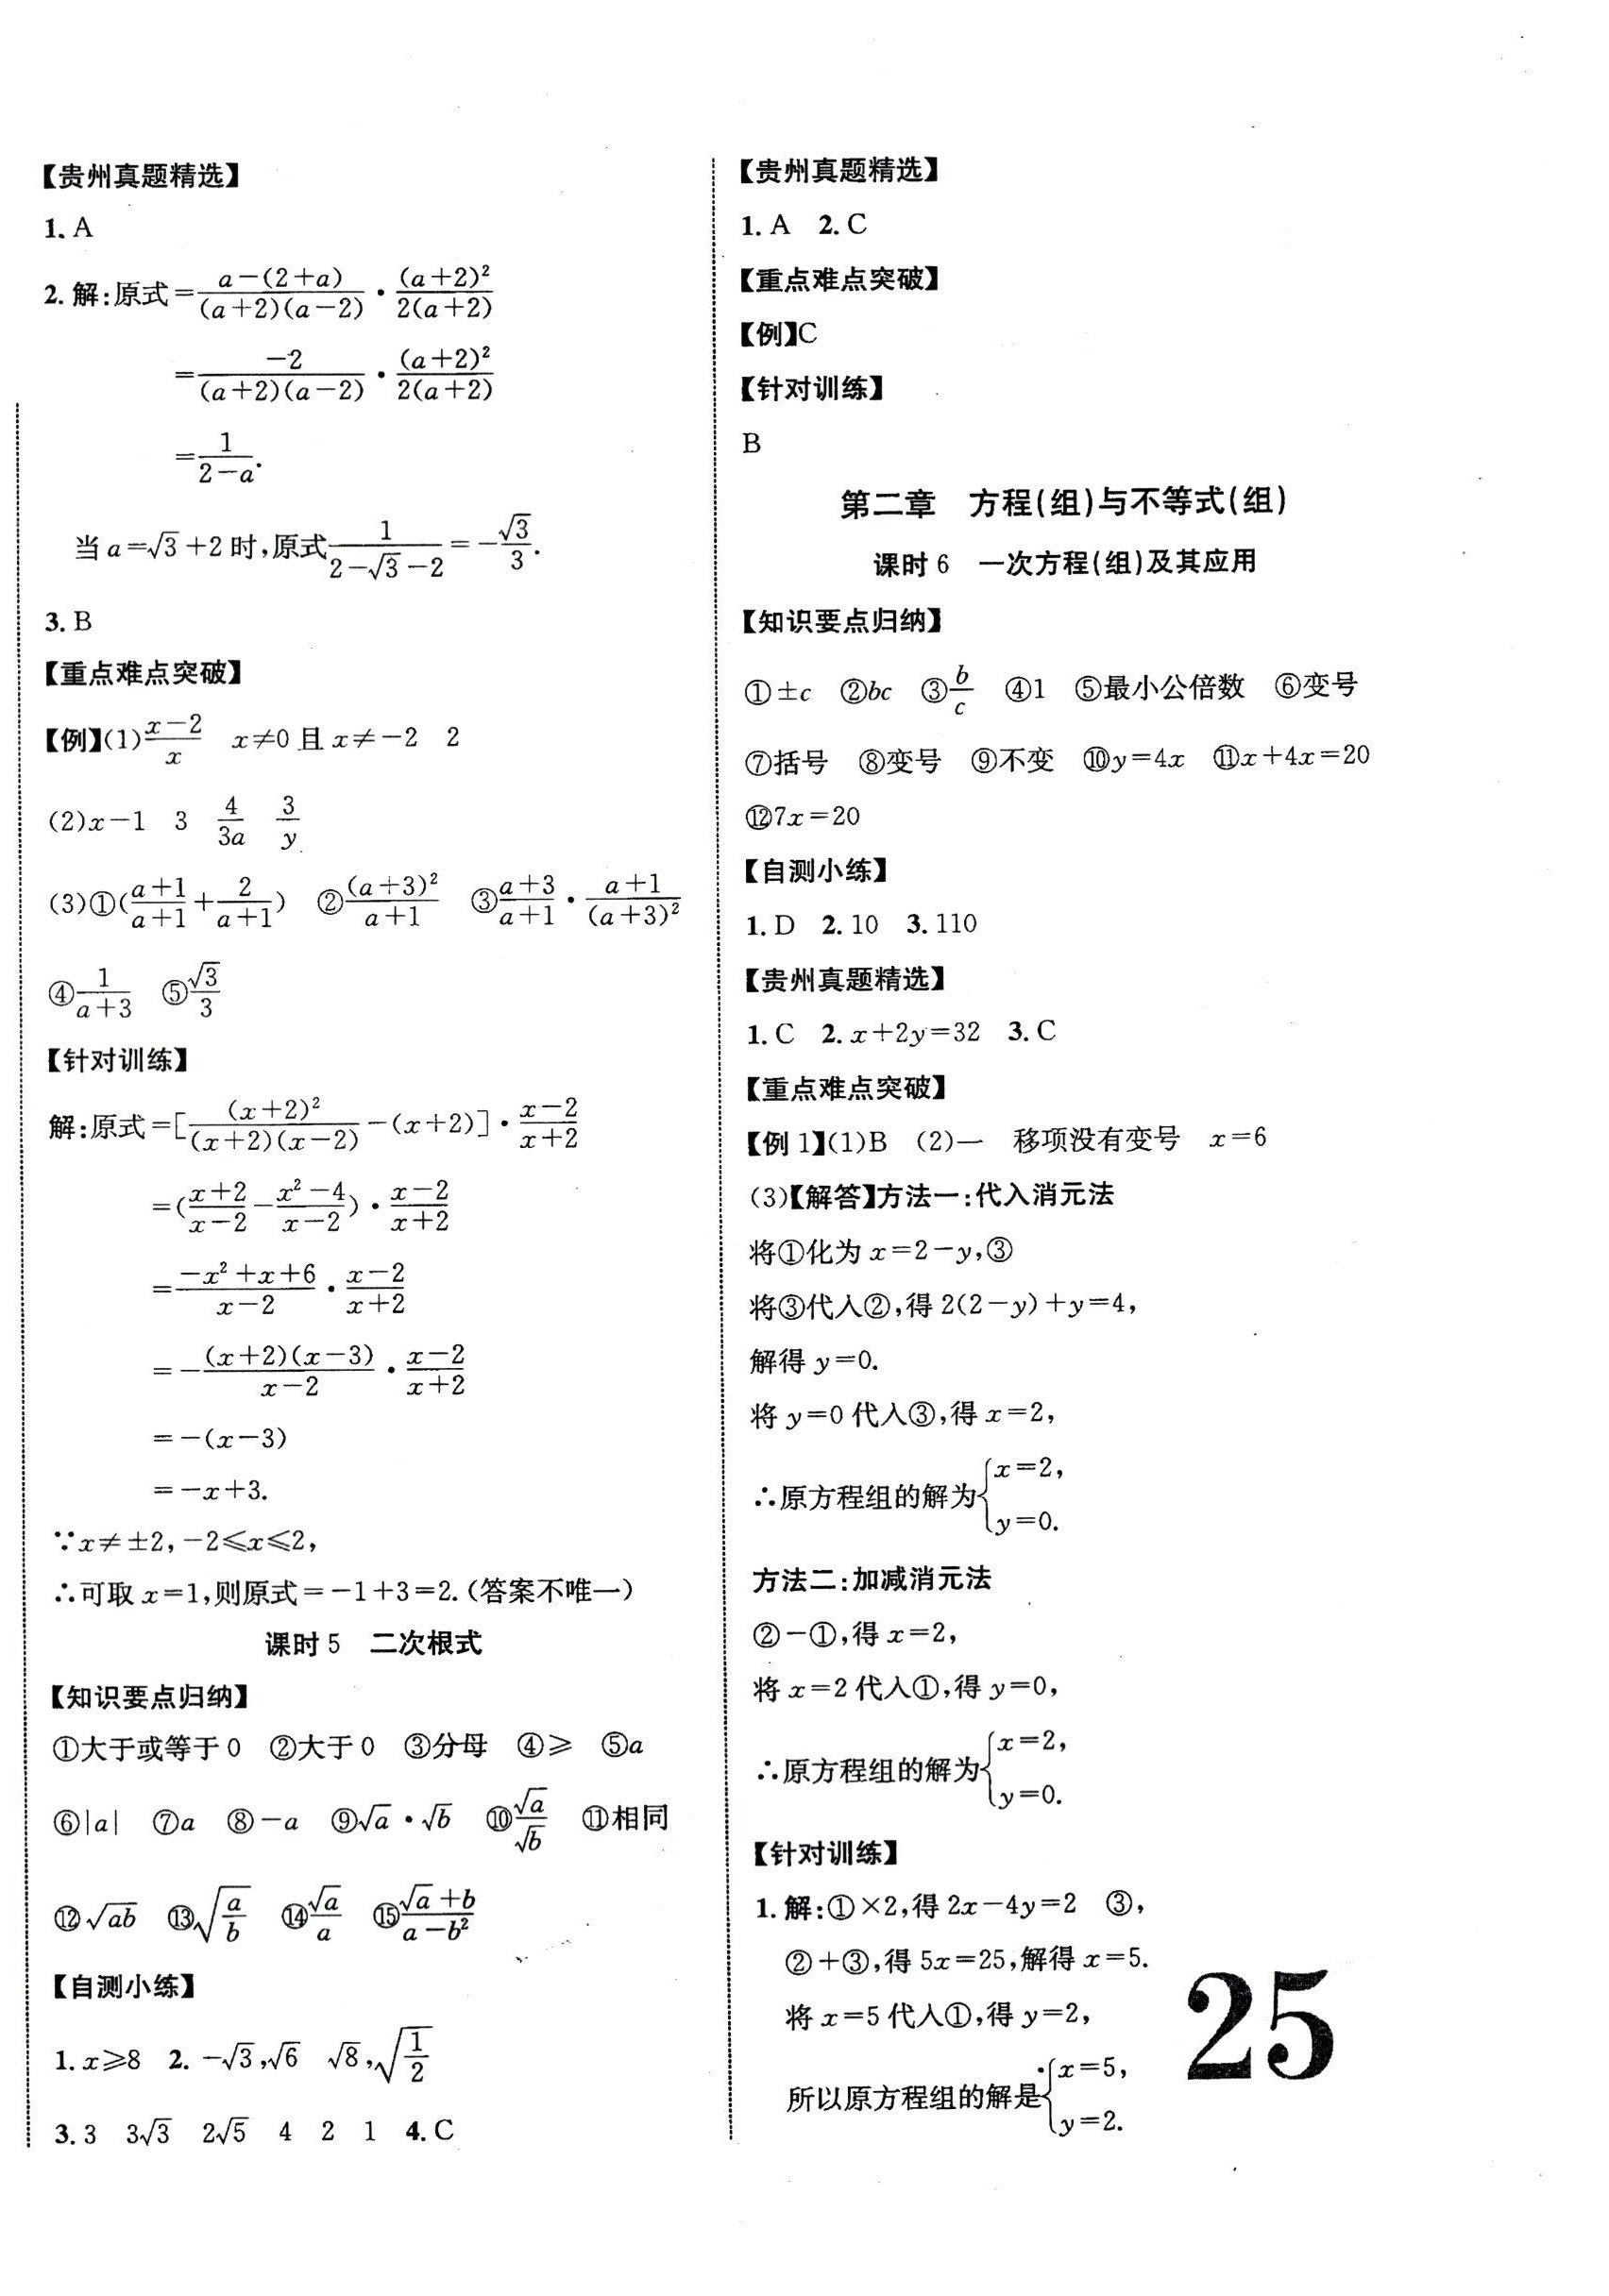 【贵州真题精选】
1. A
2. 解:原式=\frac{a-(2+a)}{(a+2)(a-2)}·\frac{(a+2)²}{2(a+2)}
=\frac{-2}{(a+2)(a-2)}·\frac{(a+2)²}{2(a+2)}
=\frac{1}{2-a}.
当a=√3+2时,原式\frac{1}{2-√3-2}=-\frac{√3}{3}.
3. B
【重点难点突破】
【例】(1)\frac{x-2}{x} x≠0且x≠-2 2
(2)x-1 3 \frac{4}{3a} \frac{3}{y}
(3)①(\frac{a+1}{a+1}+\frac{2}{a+1}) ②\frac{(a+3)²}{a+1} ③\frac{a+3}{a+1}·\frac{a+1}{(a+3)²}
④\frac{1}{a+3} ⑤\frac{√3}{3}
【针对训练】
解:原式=[\frac{(x+2)²}{(x+2)(x-2)}-(x+2)]·\frac{x-2}{x+2}
=(\frac{x+2}{x-2}-\frac{x²-4}{x-2})·\frac{x-2}{x+2}
=\frac{-x²+x+6}{x-2}·\frac{x-2}{x+2}
=-\frac{(x+2)(x-3)}{x-2}·\frac{x-2}{x+2}
=-(x-3)
=-x+3.
∵x≠±2,-2≤x≤2,
∴可取x=1,则原式=-1+3=2.(答案不唯一)
课时5 二次根式
【知识要点归纳】
①大于或等于0 ②大于0 ③分母 ④≥ ⑤a
⑥|a| ⑦a ⑧-a ⑨√a·√b ⑩\frac{√a}{√b} ⑪相同
⑫√ab ⑬√\frac{a}{b} ⑭\frac{√a}{a} ⑮\frac{√a+b}{a-b²}
【自测小练】
1. x≥8 2. -√3,√6 √8,√\frac{1}{2}
3. 3 3√3 2√5 4 2 1 4. C
【贵州真题精选】
1. A 2. C
【重点难点突破】
【例】C
【针对训练】
B
第二章 方程(组)与不等式(组)
课时6 一次方程(组)及其应用
【知识要点归纳】
①±c ②bc ③\frac{b}{c} ④1 ⑤最小公倍数 ⑥变号
⑦括号 ⑧变号 ⑨不变 ⑩y=4x ⑪x+4x=20
⑫7x=20
【自测小练】
1. D 2. 10 3. 110
【贵州真题精选】
1. C 2. x+2y=32 3. C
【重点难点突破】
【例1】(1)B (2)一 移项没有变号 x=6
(3)【解答】方法一:代入消元法
将①化为x=2-y,③
将③代入②,得2(2-y)+y=4,
解得y=0.
将y=0代入③,得x=2,
∴原方程组的解为{x=2,
y=0.
方法二:加减消元法
②-①,得x=2,
将x=2代入①,得y=0,
∴原方程组的解为{x=2,
y=0.
【针对训练】
1. 解:①×2,得2x-4y=2 ③,
②+③,得5x=25,解得x=5.
将x=5代入①,得y=2,
所以原方程组的解是{x=5,
y=2.
25